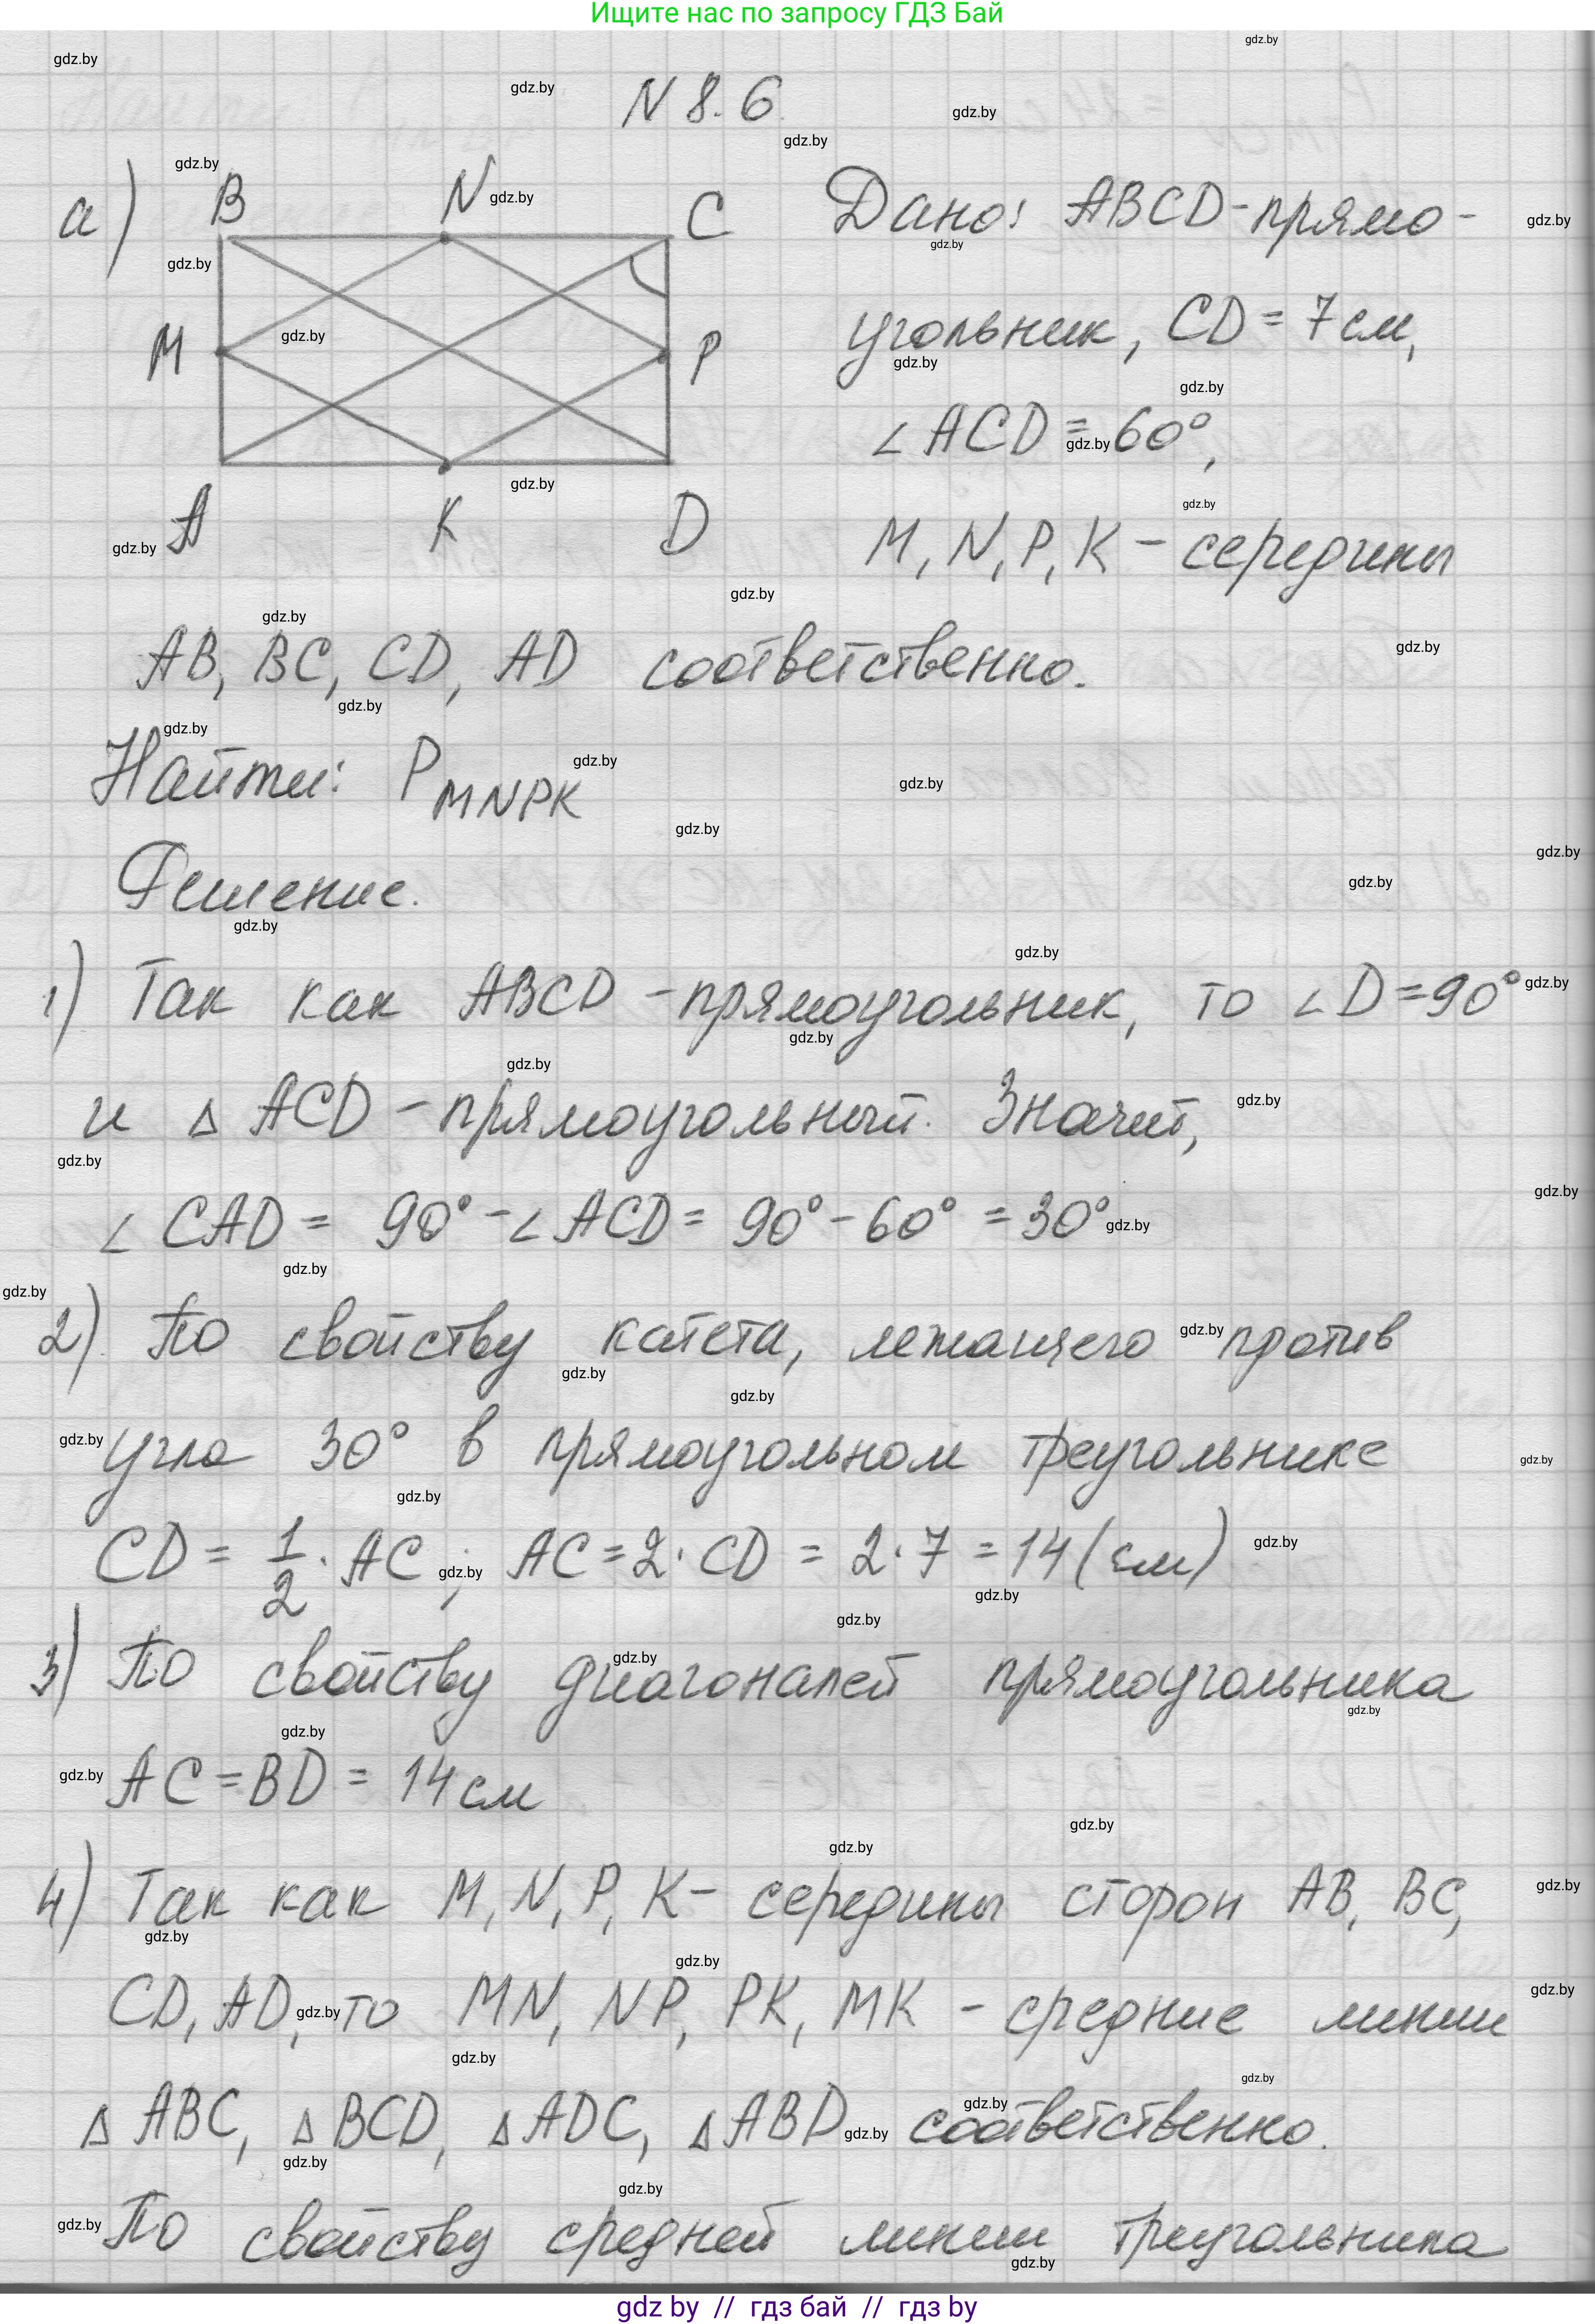 Ищите нас по запросу ГДЗ Бай
N 8.6
а) B N C
M P
A K D
Дано: ABCD-прямо-
угольник, CD = 7 см,
∠ ACD = 60°,
M, N, P, K - середины
AB, BC, CD, AD соответственно.
Найти: P MNPK
Решение.
1) Так как ABCD -прямоугольник, то ∠ D = 90°
и Δ ACD - прямоугольный. Значит,
∠ CAD = 90° - ∠ ACD = 90° - 60° = 30°
2) По свойству катета, лежащего против
угла 30° в прямоугольном треугольнике
CD = 1/2 · AC ; AC = 2 · CD = 2 · 7 = 14 (см)
3) По свойству диагоналей прямоугольника
AC = BD = 14 см
4) Так как M, N, P, K - середины сторон AB, BC,
CD, AD, то MN, NP, PK, MK - средние линии
Δ ABC, Δ BCD, Δ ADC, Δ ABD соответственно.
По свойству средней линии треугольника
gdz by // гдз бай // гдз by